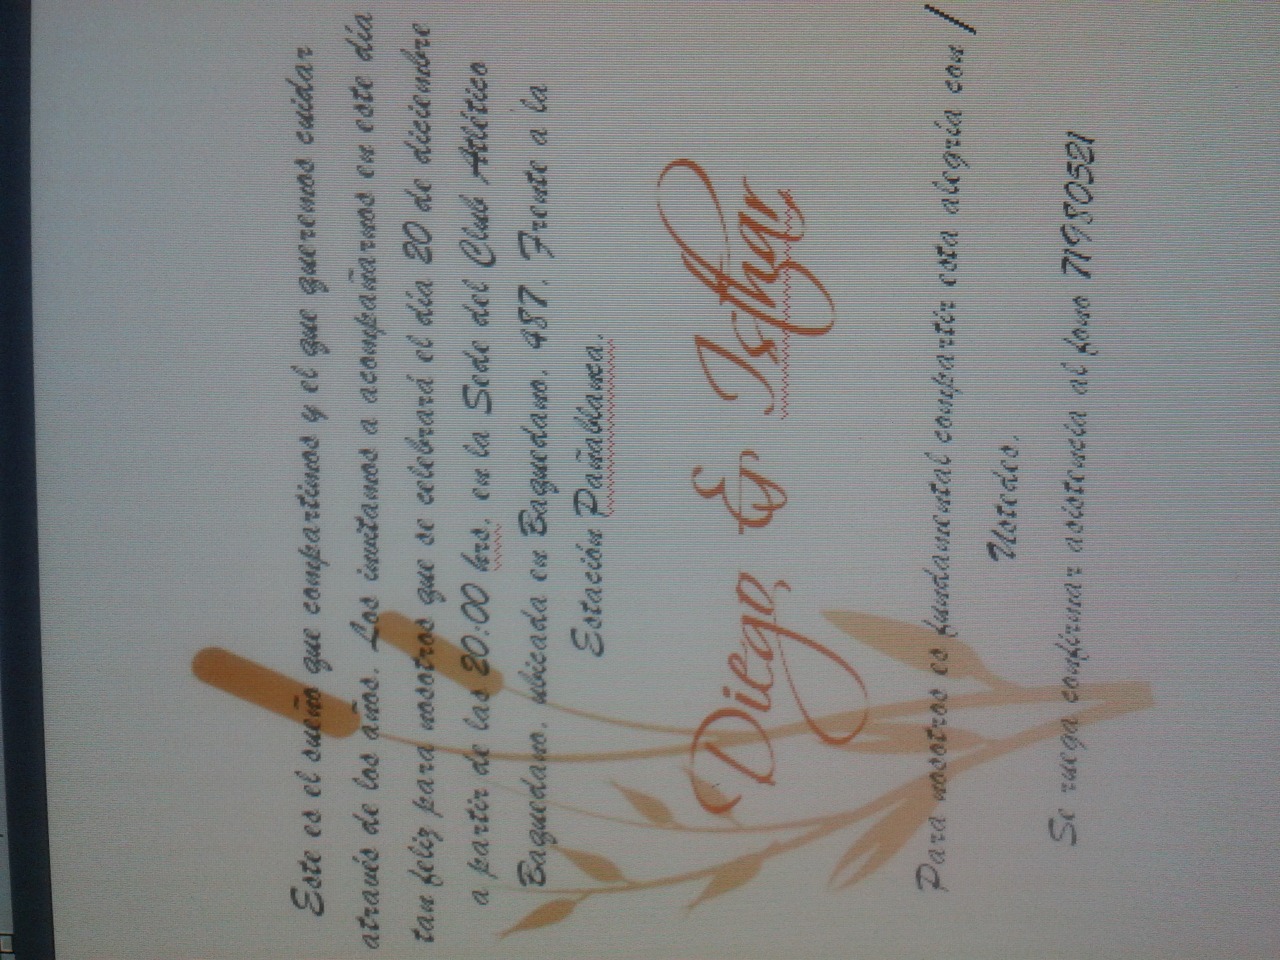 Este es el sueño que compartimos y el que queremos cuidar
através de los años. Los invitamos a acompañarnos en este día
tan feliz para nosotros que se celebrará el día 20 de diciembre
a partir de las 20:00 hrs. en la Sede del Club Atlético
Baquedano, ubicada en Baquedano, 487, Frente a la
Estación Pañablanca.
Diego & Isthar
Para nosotros es fundamental compartir esta alegría con
Ustedes.
Se ruega confirmar asistencia al fono 71980521